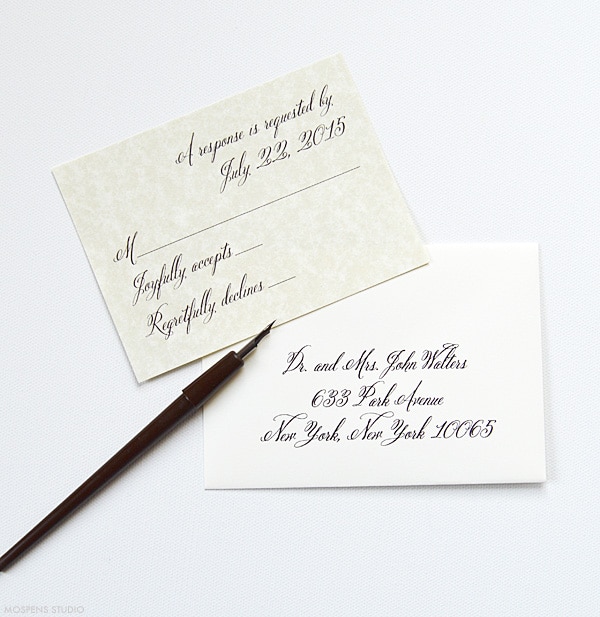 A response is requested by,
July, 22, 2015
M
Joyfully, accepts
Regretfully, declines
Dr. and Mrs. John Walters
633 Park Avenue
New York, New York 10065
MOSPENS STUDIO